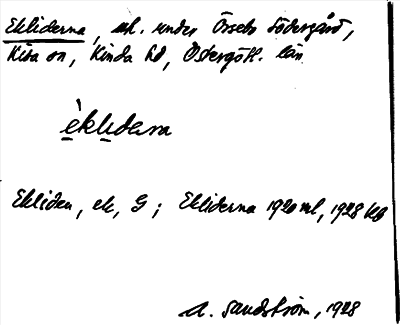 Ekliderna, ek. under Örsebo Södergård,
Kisa sn, Kinda hd, Östergötl. län
èklidæṛna
Ekliden, ek, G; Ekliderna 1920 ml, 1928 kb
A. Sandström, 1928